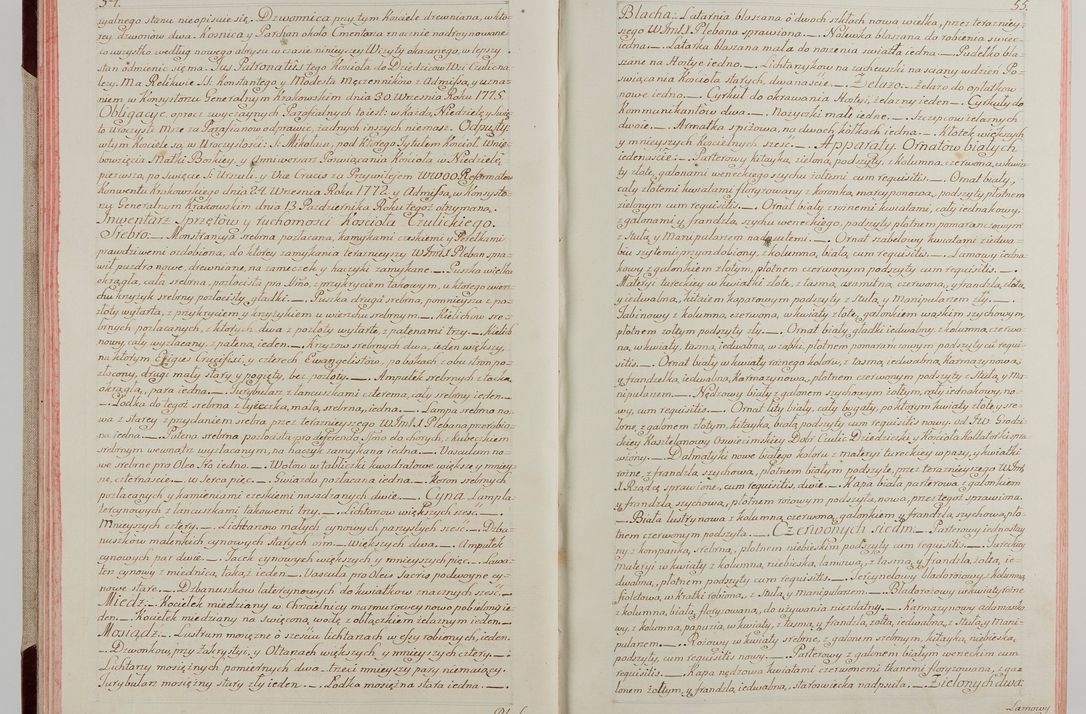 54.
ryalnego stanu nieopisuie się. Dzwonnica przy tym Kosciele drewniana, w kto-
rey dzwonów dwa. Kosnica y Parchan około Cmentarza znacznie nadruynowane
co wszystko według nowego abrysu w czasie ninieyszey Wizyty okazanego, w lepszy
stan odmienic się ma. Jus Patronatus tego Kościoła do Dziedziców Wsi Czulic na-
leży. Ma Relikwie S. Konstantego y Modesta Męczenników z Admissą y uzna-
niem w Konsystorzu Generalnym Krakowskim dnia 30. Września Roku 1775.
Obligacye oprocz zwyczaynych Parafialnych to iest: w każdą Niedzielę y świę-
to Uroczyste Msze za Parafianow odprawić, żadnych inszych niemasz. Odpusty
w tym Kościele są, w Uroczystości S. Mikołaia, pod ktorego Tytułem Kościoł. Wnie-
bowzięcia Matki Boskiey, y Anniwersarz Poświącania Kościoła w Niedzielę
pierwszą po święcie S. Urszuli. y Viae Crucis za Przywileiem WWOO. Reformatow
Konwentu Krakowskiego dnia 24. Września Roku 1772. y Admissą w Konsysto-
rzu Generalnym Krakowskim dnia 13. Października Roku tegoż otrzymaną.
Inwentarz Sprzętów y ruchomości Kościoła Czulickiego.
Srebro:_. Monstrancya srebrna pozłacana, kamykami czeskiemi y Perełkami
prawdziwemi ozdobiona, do ktorey zamykania teraznieyszy WJmć X. Pleban spra-
wił puzdro nowe, drewniane, na zameczek y haczyki zamykane._. Puszka wielka
okrągła, cała srebrna, pozłocista pro Ssmo, z przykryciem takowym, u ktorego wierz-
chu krzyżyk srebrny pozłocisty, gładki._. Puszka druga srebrna, pomnieysza z po-
złoty wytarta, z przykryciem y krzyżykiem u wierzchu srebrnym._. Kielichow sre-
brnych pozłacanych, z ktorych dwa z pozłoty wytarte, z patenami trzy._. Kielich
nowy, cały wyzłacany, z pateną, ieden._. Krzyżow srebrnych dwa, ieden większy,
na ktorym Effigies Crucifixi, y czterech Ewangelistów, po bokach obu stron po-
złocony, drugi mały stary y pogięty, bez pozłoty._. Ampułek srebrnych z tacką
okrągłą, para iedna._. Turybularz z łancuszkami czterema, cały srebrny ieden._
_. Łodka do tegoż srebrna z łyżeczką małą srebrną, iedna._. Lampa srebrna no-
wa z starey z przydaniem srebra przez teraznieyszego WJmć X. Plebana przerobio-
na iedna._. Patena srebrna pozłocista pro deferendo Ssmo do chorych, z kubeczkiem
srebrnym wewnątrz wyzłacanym, na haczyk zamykana iedna._. Vasculum no-
we srebrne pro Oleo Sto iedno._. Wotow w tabliczki kwadratowe większe y mniey-
sze, czternaście._. w Serca pięć._. Gwiazda pozłacana iedna._. Koron srebrnych
pozłacanych y kamieniami czeskiemi nasadzanych dwie._. Cyna. Lampla-
tercynowych z łancuszkami takowemi trzy._. Lichtarzow większych sześć._.
Mnieyszych cztery._. Lichtarzow małych cynowych parzystych sześć._. Dzba-
nuszków malenkich cynowych starych ośm._. Większych dwa._. Ampułek
cynowych par dwie._. Tacek cynowych większych y mnieyszych pięć._. Lawa-
terz cynowy z miednicą, takąż ieden._. Vascula pro Oleis Sacris podwoyne cy-
nowe stare._. Dzbanuszkow latercynowych do kwiatków znacznych sześć._.
Miedź._. Kociełek miedziany w Chrzcielnicy marmurowey nowo pobielany ie-
den._. Kociełek miedziany na święconą wodę z obłączkiem żelaznym ieden._.
Mosiądz._. Lustrum mosiężne o sześciu lichtarzach w essy robionych, ieden.
_. Dzwonkow przy Zakrystyi, y Ołtarzach większych y mnieyszych cztery._.
Lichtarzy mosiężnych pomiernych dwa. trzeci mnieyszy pary niemaiący.
Turybularz mosiężny stary zły ieden._. Łodka mosiężna stara iedna._.
55.
Blacha:_. Latarnia blaszana o dwoch szkłach nowa wielka, przez teraźniey-
szego WJmć X. Plebana sprawiona._. Nalewka blaszana do robienia swiec
iedna._. Latarka blaszana mała do noszenia swiatła iedna._. Pudełko bla-
szane na Hostye iedno._. Lichtarzykow na zacheuszki na ściany w dzień Po-
święcania Kościoła starych, dwanaście._. Żelazo._. żelazo do opłatkow
nowe iedno._. Cyrkuł do okrawania Hostyi, żelazny ieden._. Cyrkuły do
Kommunikantow dwa._. Nożyczki małe iedne._. Szczypcow żelaznych
dwoie._. Armatka spiżowa, na dwoch kołkach iedna._. Kłotek większych
y mnieyszych Kościelnych sześć._. Apparaty. Ornatow białych
iedenaście._. Parterowy kitayką, zieloną, podszyty, z kolumną, czerwoną, w kwia-
ty złote, galonami weneckiego szychu żołtemi cum requisitis._. Ornat biały,
cały złotemi kwiatami floryzowany z koronką marcypanową, podszyty płotnem
zielonym cum requisitis._. Ornat biały z rożnemi kwiatami, cały iednakowy,
z galonami y frandzlą, szychu weneckiego, podszyty płotnem pomarańczowym
z Stułą y Manipularzem nadprutemi._. Ornat szabelowy kwiatami z iedwa-
biu szytemi przyozdobiony, z kolumną, białą, cum requisitis._. Lamowy iedna-
kowy z galonkiem złotym, płotnem czerwonym podszyty cum requisitis._.
Materyi tureckiey w kwiatki złote, z tasmą, axamitną czerwoną, y frandzlą złotą,
y iedwabną, kitaiem kaparowym podszyty z Stułą y Manipularzem zły._.
Tubinowy z kolumną czerwoną, w kwiaty złote, galonkiem wąskim szychowym,
płotnem żołtym podszyty zły._. Ornat biały gładki iedwabny z kolumną, czerwo-
ną, w kwiaty, tasmą, iedwabną, w ząbki, płotnem pomarańczowym podszyty cum requi-
sitis._. Ornat biały w kwiaty rożnego koloru, z tasmą, iedwabną, karmazynową,
y frandzelką iedwabną, karmazynową, płotnem czerwonym podszyty z Stułą, y Ma-
nipularzem._. Nędzowy biały z galonem szychowym żołtym, cały iednakowy, no-
wy, cum requisitis._. Ornat lity biały, cały bogaty, po ktorym kwiaty złote y sre-
brne z galonem złotym, kitayką, białą, podszyty cum requisitis nowy od JW. Grodzi-
ckiey Kasztelanowy Oświecimskiey Dobr Czulic Dziedziczki, y Kościoła Kollatorki spra-
wiony._. Dalmatyki nowe białego koloru z materyi tureckiey w pasy, y kwiatki
rożne, z frandzlą szychową, płotnem białym podszyte, przez teraznieyszego WJmć
X. Rządcę sprawione, cum requisitis, dwie._. Kapa biała parterowa z galonkiem
y frandzlą szychową, płotnem rożowym podszyta, nowa, przez tegoż sprawiona.
_. Biała lustrynowa z kolumną czerwoną, galonkiem y frandzlą, szychową, pło-
tnem czerwonym podszyta._. Czerwonych siedm._. Parterowy iednostay-
ny z kompanką srebrną, płotnem niebieskim podszyty cum requisitis._. Turecki
materyi w kwiaty z kolumną, niebieską, lamową, z tasmą y frandzlą żołtą, ie-
dwabną, płotnem podszyty cum requisitis._. Tercynelowy bladorożowy z kolumną
fioletową, w kratki robioną, z Stułą y Manipularzem._. Bladorożowy w kwiaty rożne
z kolumną, białą, floryzowaną, do używania niezdatny._. Karmazynowy adamasko-
wy, z kolumną, papuzią, w kwiaty, z tasmą y frandzlą, żołtą, iedwabną, z Stułą y Mani-
pularzem._. Rożowy w kwiaty srebrne, z galonem srebrnym, kitayką, niebieską
podszyty, cum requisitis nowy._. Parterowy z galonem białym weneckim cum
requisitis._. Kapa nędzowa kwiatami czerwonemi tkanemi floryzowana, z ga-
lonem żołtym, y frandzlą, iedwabną, staroświecka nadpsuta._. Zielonych dwa:
Lamowy